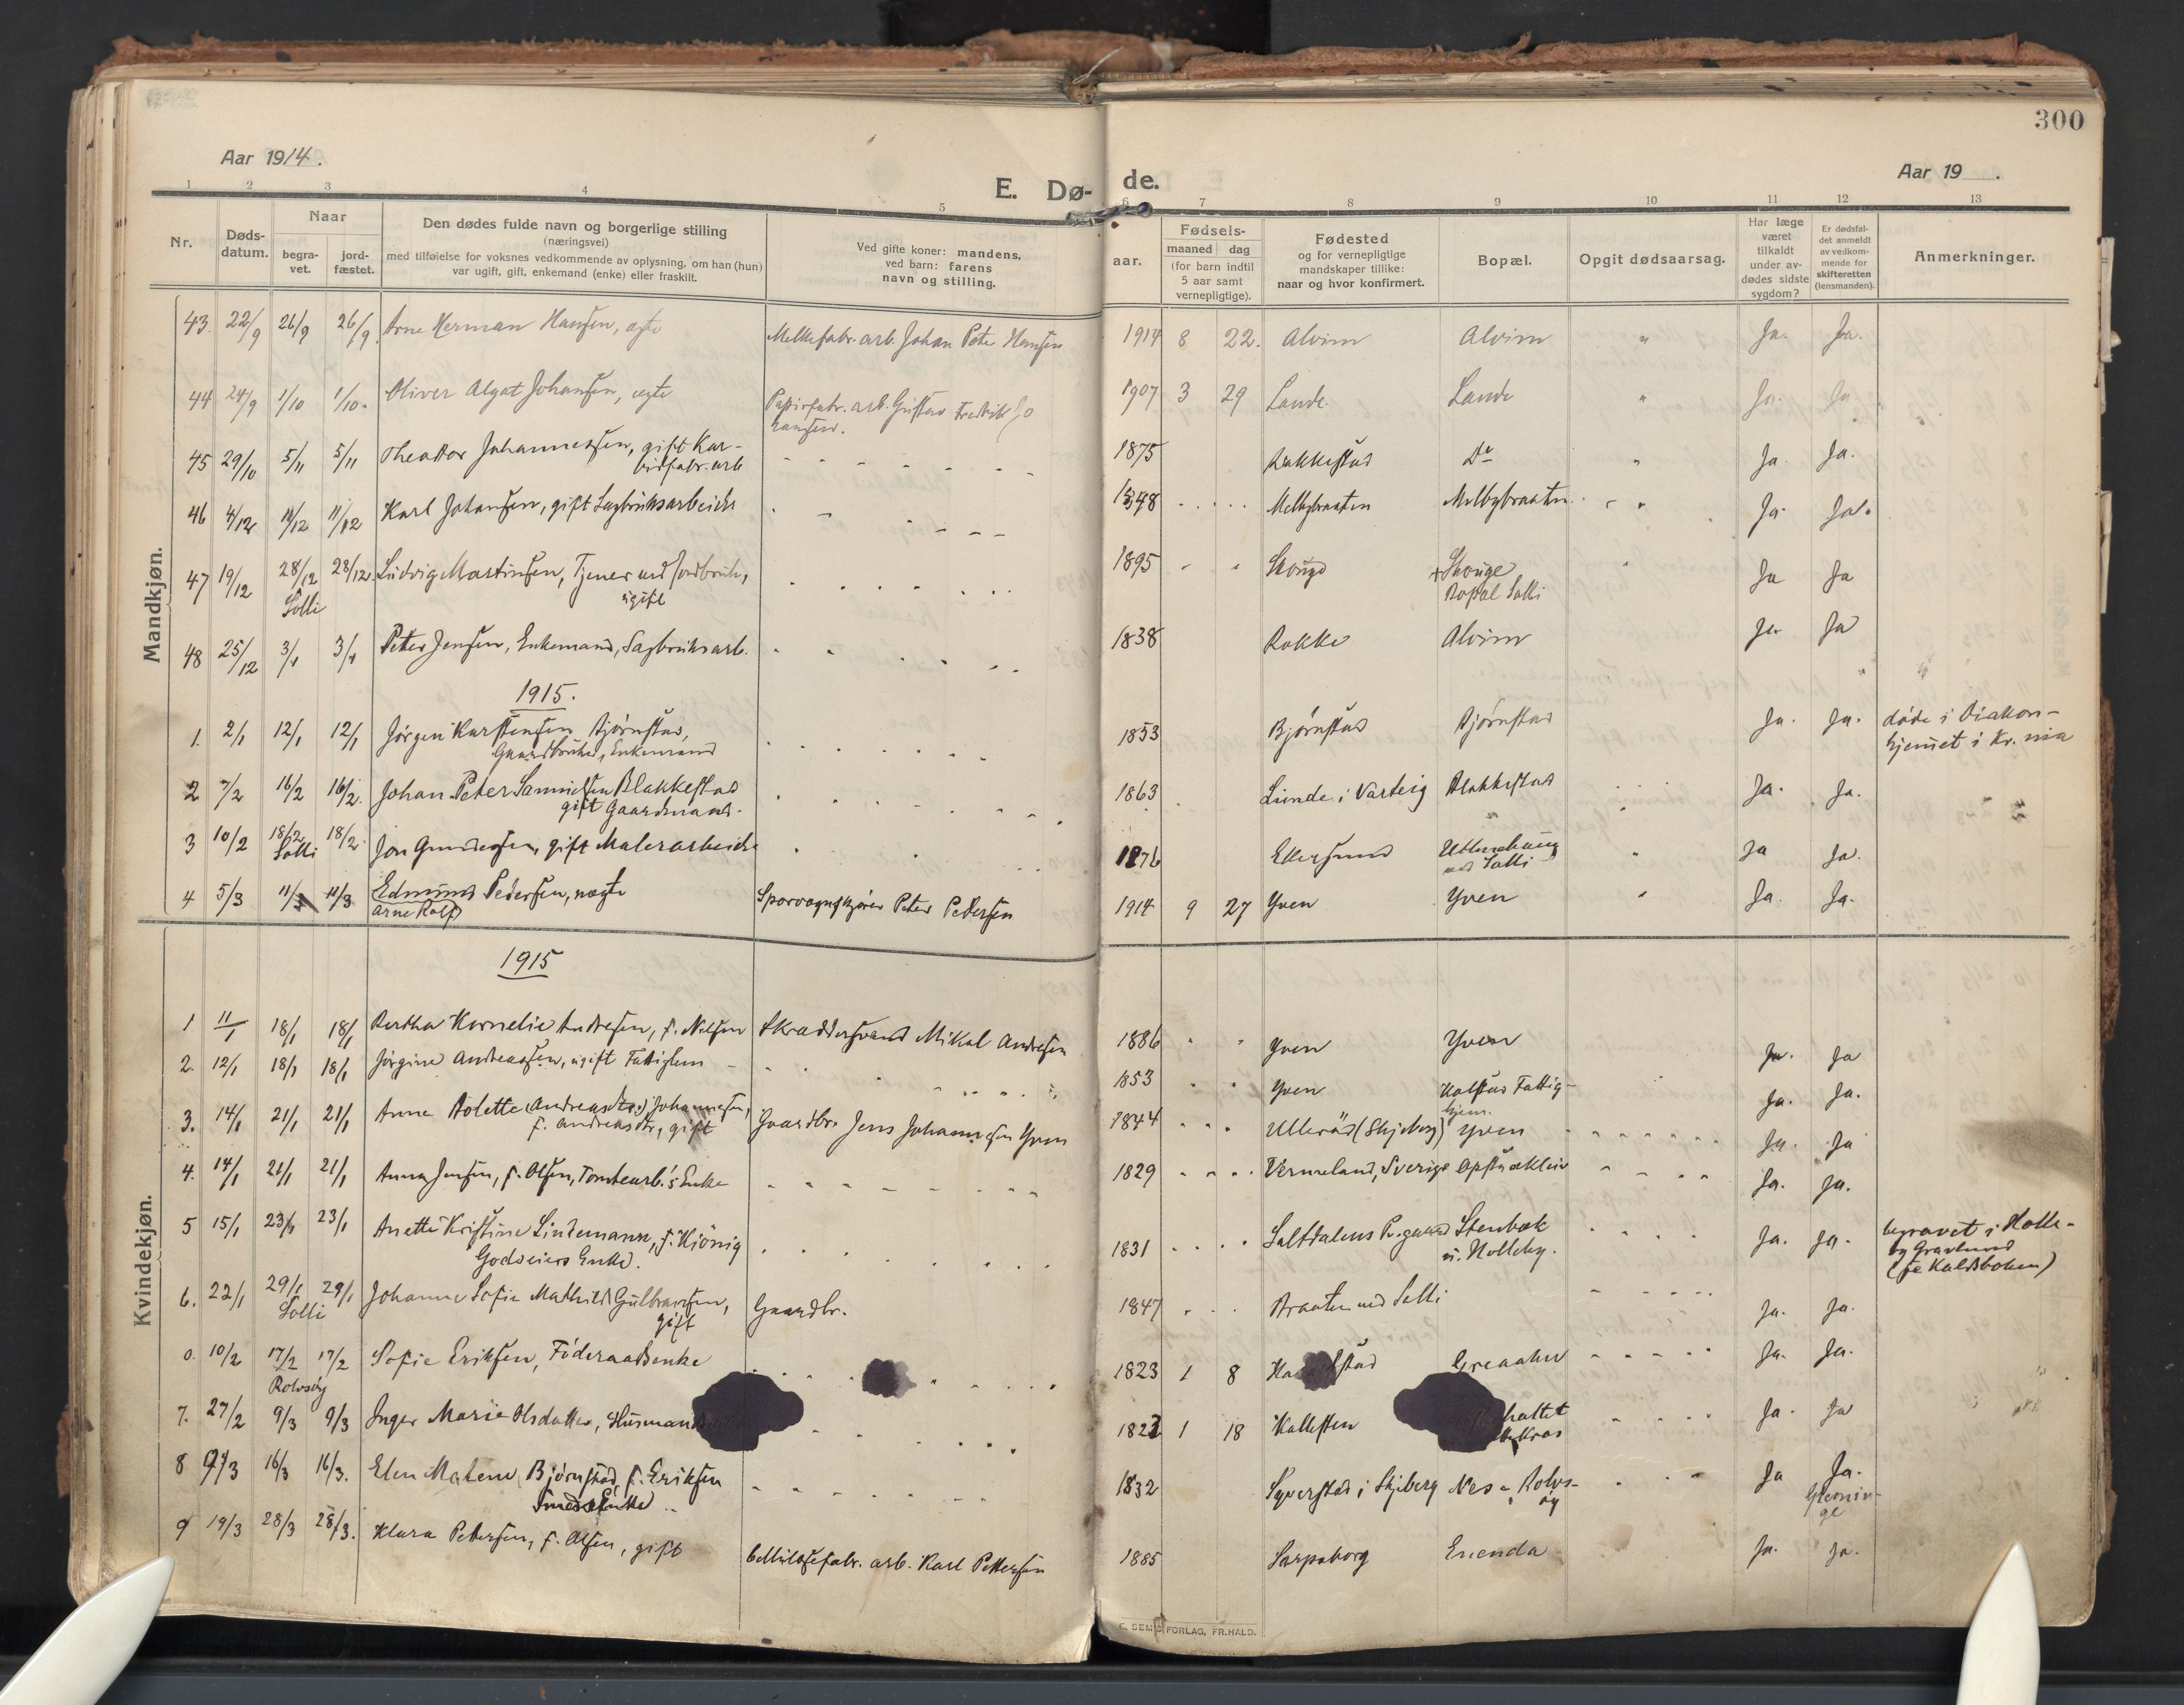 300
Aar 1914.
Aar 19 .
E. Dø- de.
1 2 3 4 5 6 7 8 9 10 11 12 13
Nr.
Døds-
datum.
Naar
begra-
vet.
jord-
fæstet.
Den dødes fulde navn og borgerlige stilling
(næringsvei)
med tilføielse for voksnes vedkommende av oplysning, om han (hun)
var ugift, gift, enkemand (enke) eller fraskilt.
Ved gifte koner: mandens,
ved barn: farens
navn og stilling.
aar.
Fødsels-
maaned dag
(for barn indtil
5 aar samt
vernepligtige).
Fødested
og for vernepligtige
mandskaper tillike:
naar og hvor konfirmert.
Bopæl.
Opgit dødsaarsag.
Har læge
været
tilkaldt
under av-
dødes sidste
sygdom?
Er dødsfal-
det anmeldt
av vedkom-
mende for
skifteretten
(lensmanden).
Anmerkninger.
Mandkjøn.
43. 22/9 26/9 26/9 Arne Herman Hansen, egte Melkefabr. arb. Johan Peter Hansen 1914 8 22. Alvim Alvim " Ja. Ja.
44 24/9 1/10 1/10. Oliver Algot Johansen, egte Papirfabr. arb. Gustav Fredrik Jo 1907 3 29 Lande. Lande " Ja. Ja
hansen.
45 29/10 5/11 5/11 Theodor Johannessen, gift Kar- 1875 Rakkestad Do " Ja. Ja.
bidfabr. arb
46 4/12 11/12 11/12 Karl Johansen, gift Sagbruksarbeider 1848 Melbybraaten Melbybraaten " Ja. Ja.
47 19/12 28/12 28/12. Ludvig Martinsen, Tjener ved Jordbruk, 1895 " " Skouge + Skouge " Ja Ja
Solli ugift Bopæl Solli
48 25/12 3/1 3/1 Peter Jensen, Enkemand, Sagbruksarb. 1838 Rokke Alvim Ja Ja
1915.
1. 2/1 12/1 12/1 Jørgen Karstensen Bjørnstad, 1853 Bjørnstad Bjørnstad Ja. Ja. døde i Diakon-
Gaardbruker, Enkemand hjemet i Kr.nia
2 7/2 16/2 16/2. Johan Peter Samuelsen Blakkestad 1863 Lunde i Varteig Blakkestad Ja. Ja.
gift Gaardmand.
3 10/2 18/2 18/2. Jon Gundersen, gift Malerarbeider 1876 Ekersund " Ja Ja.
Solli ved Solli
4 5/3 11/3 11/3 Edmund Pedersen, uægte Sporvognskjører Peter Pettersen 1914 9 27 Yven Yven " Ja. Ja.
Arne Rolf
Kvindekjøn.
1915
1 11/1 18/1 18/1 Bertha Kornelie Andresen, f. Nilsen Skræddersvend Mikal Andresen 1886 " " Yven Yven Ja. Ja
2. 12/1 18/1 18/1 Jørgine Andreassen, ugift Fattiglem 1853 " " Yven Kalstad Fattig- Ja. Ja.
hjem.
3. 14/1 21/1 21/1 Anne Bolette (Andreasdtr.) Johannesen, Gaardbr. Jens Johannesen Yven 1844 Ullerød (Skjeberg) Yven Ja. Ja
f. Andreasdtr, gift
4. 14/1 21/1 21/1 Anna Jensen, f. Olsen, Tomtearb.'s Enke 1829 Vermeland, Sverige Opstadkleiv Ja. Ja.
5 15/1 23/1 23/1 Anette Kristine Lindemann, f. Kjønig 1831 Saltdalens Pr.gjeld Stenbæk Ja. Ja. begravet i Holle-
Godseiers Enke. v. Holleby. by Gravlund
(se Kaldsboken)
6. 22/1 29/1 29/1 Johanne Sofie Mathild Gulbransen, Gaardbr. 1847 Braaten ved Solli Ja. Ja.
Solli gift
0. 10/2 17/2 17/2 Sofie Eriksen, Føderaadsenke 1823 1 8 Greaaker Ja. Ja.
Rolvsøy
7. 27/2 9/3 9/3 Inger Marie Olsdatter, Husmands 1822 1 18 Kallesten Ja. Ja
8 9/3 16/3 16/3. Elen Malene Bjørnstad, f. Eriksen 1832 Syverstad i Skjeberg Nes i Rolvs- Ja Ja.
Smeds Enke øy Glemmin-
ge
9 19/3 28/3 28/3. Klara Pettersen, f. Olsen, gift Cellulosefabr. arb. Karl Pettersen 1885 Sarpsborg Enenda Ja. Ja.
FORLAG, FR.HALD.